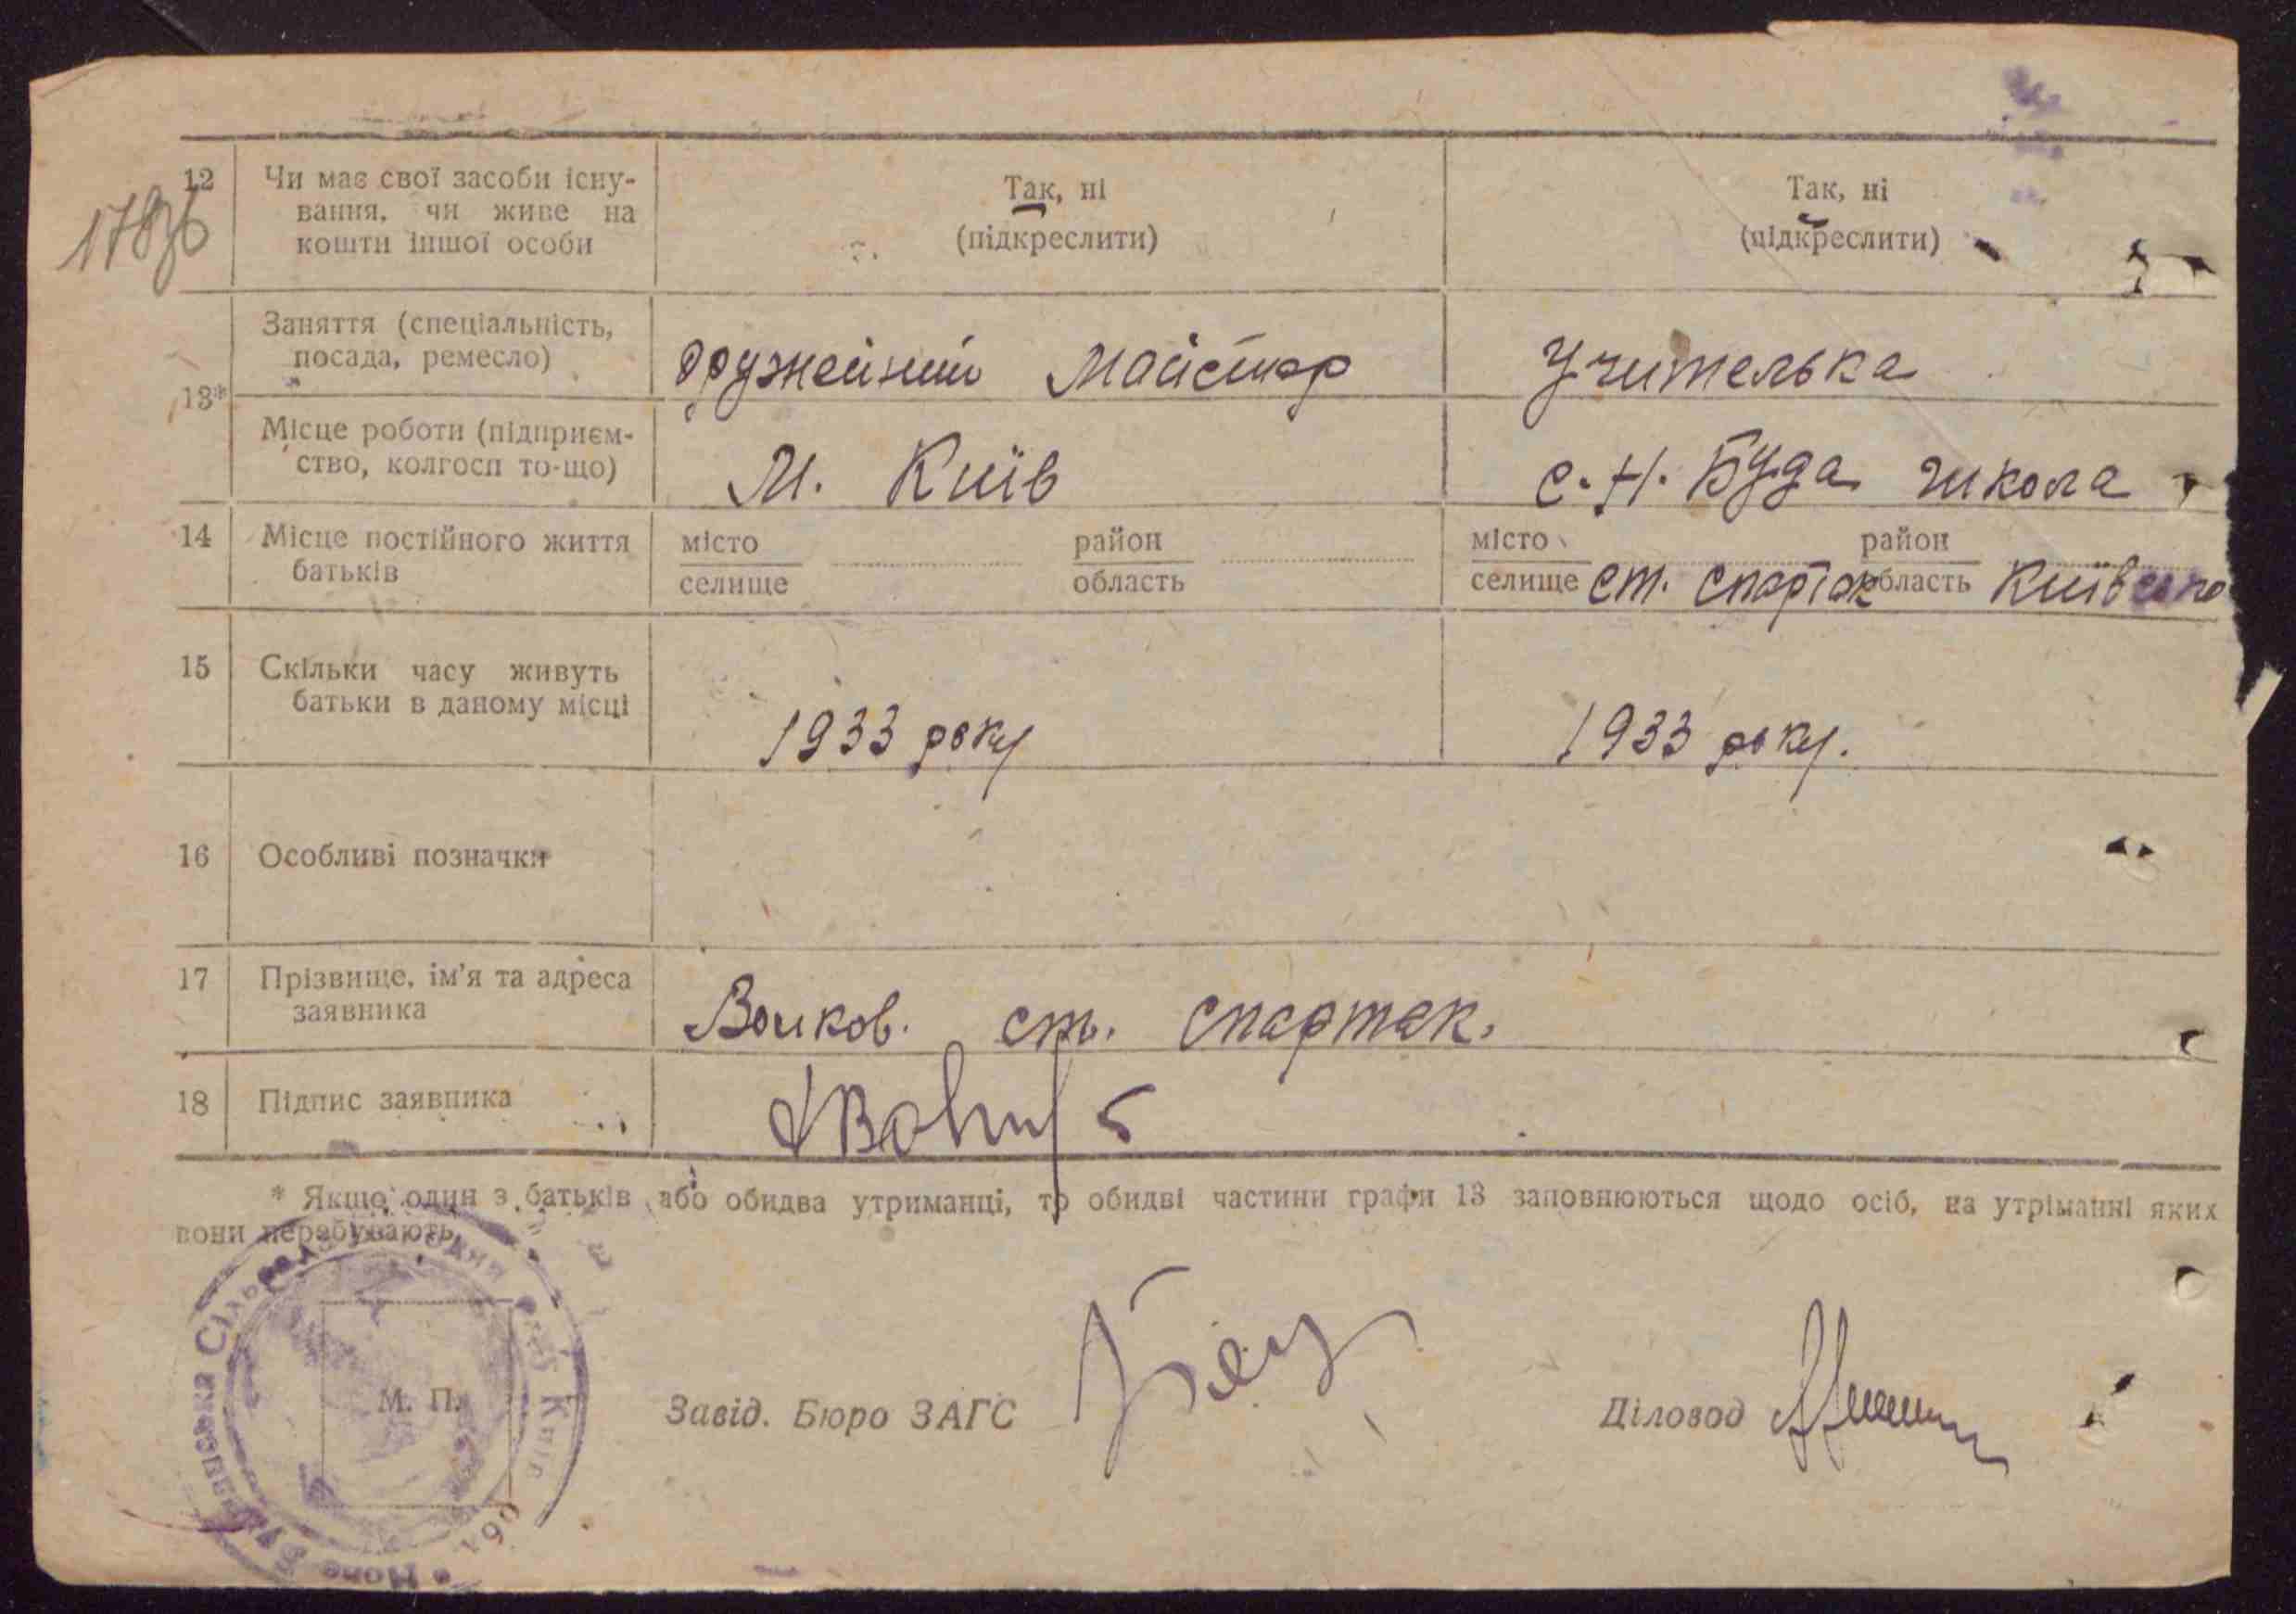 178зв
12 Чи має свої засоби існу- Так, ні Так, ні
вання, чи живе на (підкреслити) (підкреслити)
кошти іншої особи
13* Заняття (спеціальність, посада, ремесло) оружейний майстер учителька
Місце роботи (підприєм-
ство, колгосп то-що) м. Київ с. Н. Буда школа
14 Місце постійного життя місто район місто район
батьків селище область селище ст. спартак область Київська
15 Скільки часу живуть
батьки в даному місці 1933 року 1933 року.
16 Особливі позначки
17 Прізвище, ім'я та адреса
заявника Волков. ст. спартак.
18 Підпис заявника
* Якщо один з батьків або обидва утриманці, то обидві частини графи 13 заповнюються щодо осіб, на утріманні яких
вони перебувають.
М. П.
Завід. Бюро ЗАГС Діловод